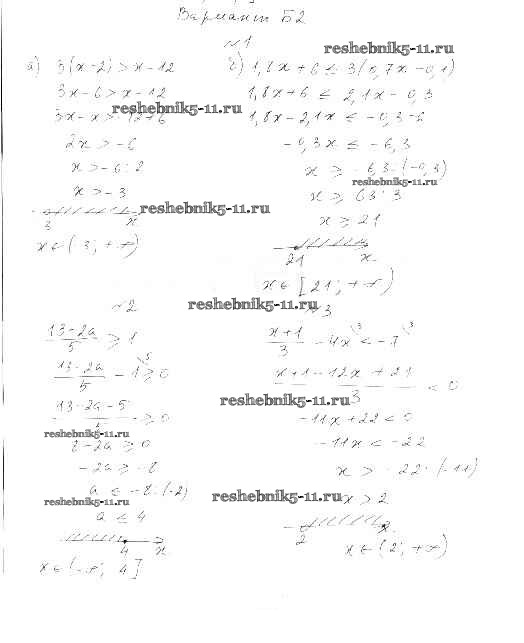 Вариант Б2
№1
reshebnik5-11.ru
а) 3(x-2) > x-12
3x-6 > x-12
reshebnik5-11.ru
3x-x > -12+6
2x > -6
x > -6:2
x > -3
reshebnik5-11.ru
3 x
x ∈ (3; +∞)
б) 1,8x+6 ≤ 3(0,7x-0,1)
1,8x+6 ≤ 2,1x-0,3
1,8x-2,1x ≤ -0,3-6
-0,3x ≤ -6,3
x ≥ -6,3:(-0,3)
reshebnik5-11.ru
x ≥ 63:3
x ≥ 21
21 x
x ∈ [21; +∞)
reshebnik5-11.ru
№2
13-2a/5 ≥ 1
13-2a/5 - 1 ≥ 0
13-2a-5/5 ≥ 0
reshebnik5-11.ru
8-2a ≥ 0
-2a ≥ -8
a ≤ -8:(-2)
reshebnik5-11.ru
a ≤ 4
4 x
x ∈ (-∞; 4]
№3
x+1/3 - 4x < -7
x+1-12x+21/3 < 0
reshebnik5-11.ru
-11x+22 < 0
-11x < -22
x > -22:(-11)
reshebnik5-11.ru
x > 2
2 x
x ∈ (2; +∞)